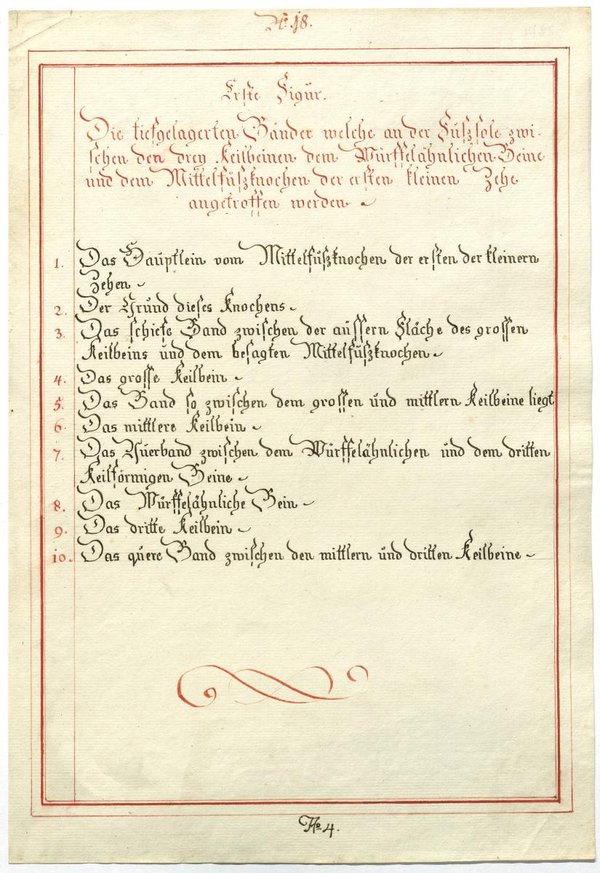 N. 18.
Erste Figur.
Die tiefgelagerten Bänder welche an der Fußsole zwi-
schen den drey Keilbeinen dem Würffelähnlichen Beine
und dem Mittelfußknochen der ersten kleinen Zehe
angetroffen werden.
1. Das Häuptlein vom Mittelfußknochen der ersten der kleinern
Zehen
2. Der Grund dieses Knochens
3. Das schiefe Band zwischen der aussern Fläche des grossen
Keilbeins und dem besagten Mittelfußknochen
4. Das grosse Keilbein
5. Das Band so zwischen dem grossen und mittlern Keilbeine liegt
6. Das mittlere Keilbein
7. Das Querband zwischen dem Würffelähnlichen und dem dritten
Keilförmigen Beine
8. Das Würffelähnliche Bein
9. Das dritte Keilbein
10. Das quere Band zwischen den mittlern und dritten Keilbeine
No 4.